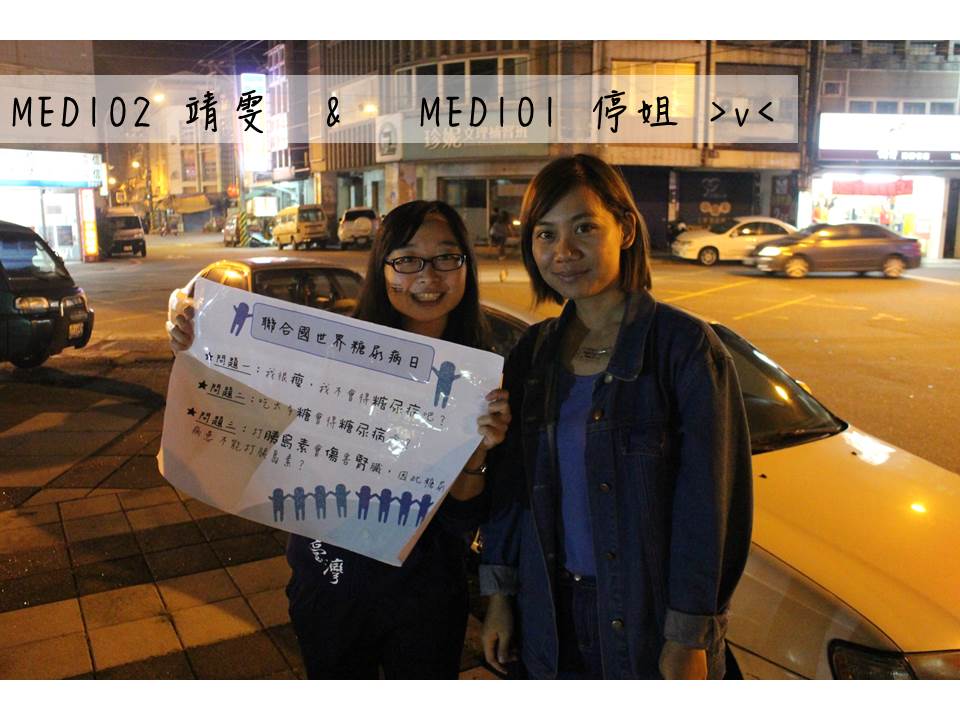 MED102 靖雯 & MED101 停姐 >v<
珍妮文理補習班
聯合國世界糖尿病日
★問題一：我很瘦，我不會得糖尿病吧？
★問題二：吃太多糖會得糖尿病
★問題三：打胰島素會傷害腎臟，因此糖尿
病患不能打胰島素？
臺灣